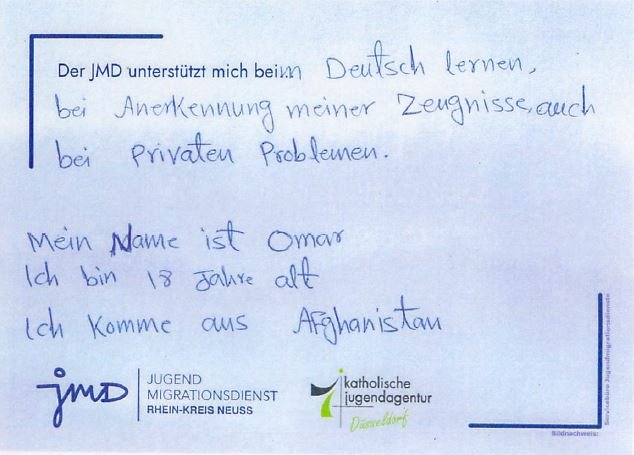 Der JMD unterstützt mich beim Deutsch lernen,
bei Anerkennung meiner Zeugnisse, auch
bei Privaten Problemen.
Mein Name ist Omar
Ich bin 18 Jahre alt
Ich Komme aus Afghanistan
jmd JUGEND
MIGRATIONSDIENST
RHEIN-KREIS NEUSS
katholische
jugendagentur
Düsseldorf
Servicebüro Jugendmigrationsdienste
Bildnachweis: